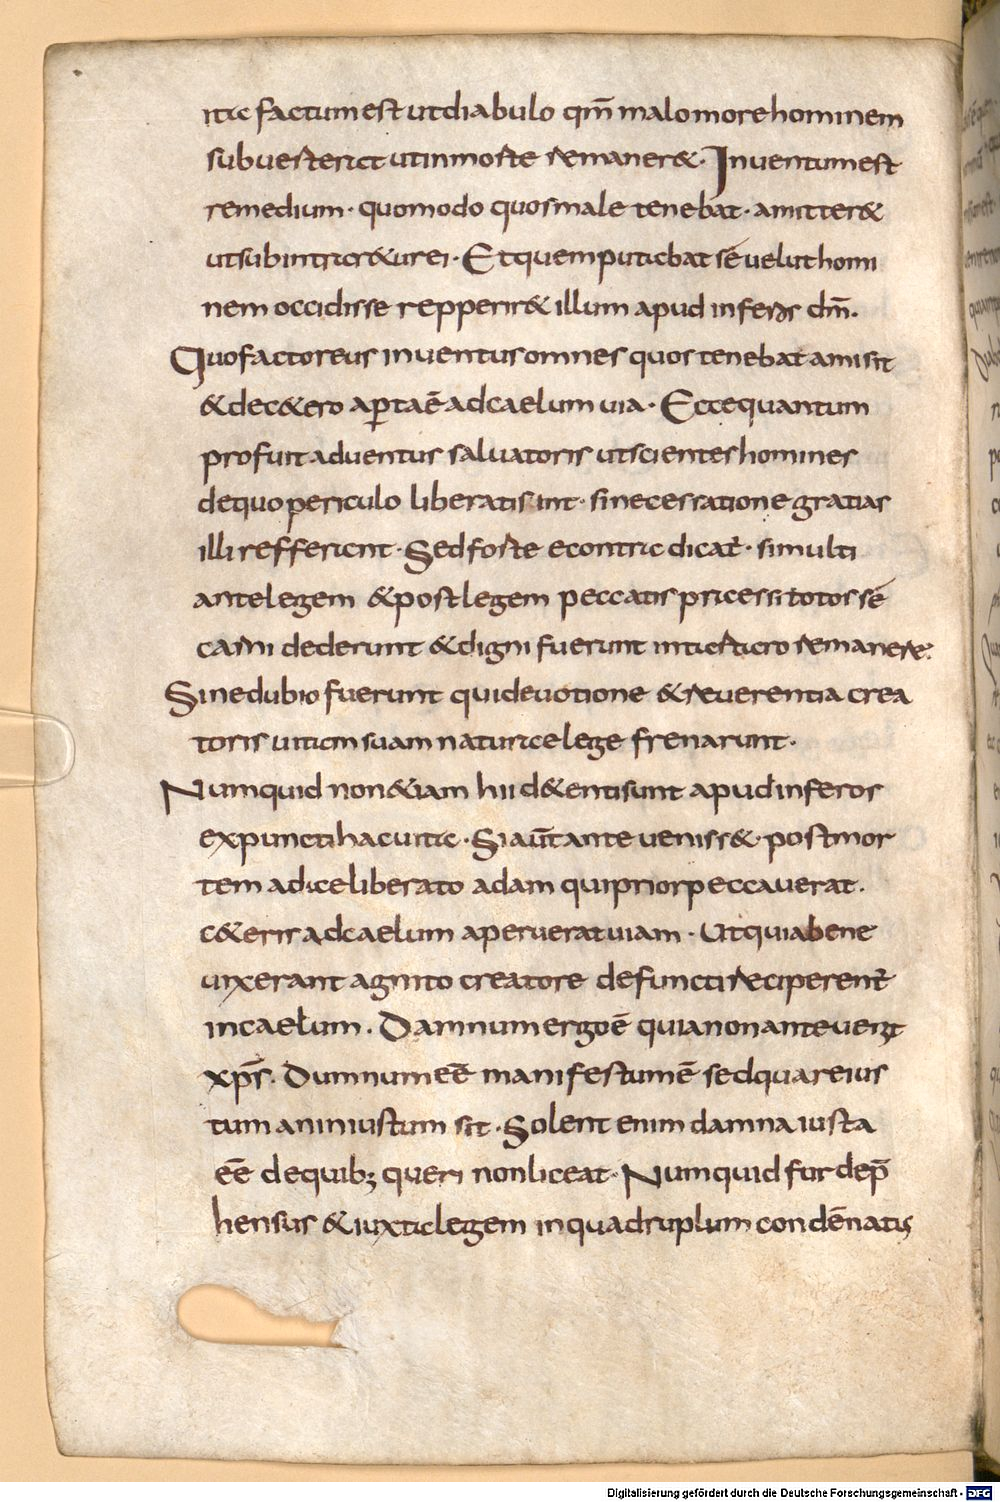 ita factum est ut diabulo qm̄ malo more hominem
subuerterat ut in morte remaner&. Inuentum est
remedium · quomodo quos male tenebat · amitter&
ut sub intrar& urei · Et quem putabat sē uelut homi
nem occidisse repperir& illum apud inferos dm̄.
Quo facto reus inuentus omnes quos tenebat amisit
& dec&ero aꝑta ē ad caelum uia · Ecce quantum
profuit aduentus saluatoris ut scientes homines
de quo periculo liberati sint · sine cessatione gratias
illi refferant · Sed forte econtra dicat̄ · si multi
ante legem & post legem peccatis pressi totos sē
carni dederunt & digni fuerunt in tartaro remanere.
Sine dubio fuerunt qui deuotione & reuerentia crea
toris uitam suam naturae lege frenarunt ·
Numquid non &iam hii d&enti sunt apud inferos
expuncti hac uita · Si aūt ante ueniss& · post mor
tem adice liberato adam qui prior peccauerat ·
c&eris ad caelum aperuerat uiam · Ut quia bene
uixerant agnito creatore defuncti reciperent̄
in caelum · Damnum ergo ē quia non ante uenit
xp̄s · Dumnum eē manifestum ē sed quare ius
tum an iniustum sit · Solent enim damna iusta
eē de quib; queri non liceat · Numquid fur dep̄
hensus & iuxta legem in quadruplum condēnatus
Digitalisierung gefördert durch die Deutsche Forschungsgemeinschaft - DFG